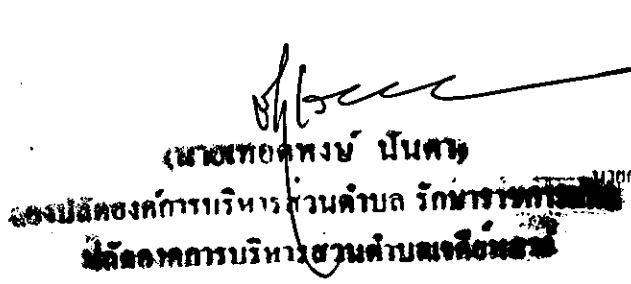 (นายเทอดพงษ์ ปันตา)
รองปลัดองค์การบริหารส่วนตำบล รักษาราชการแทน
ปลัดองค์การบริหารส่วนตำบลเจดีย์หลวง